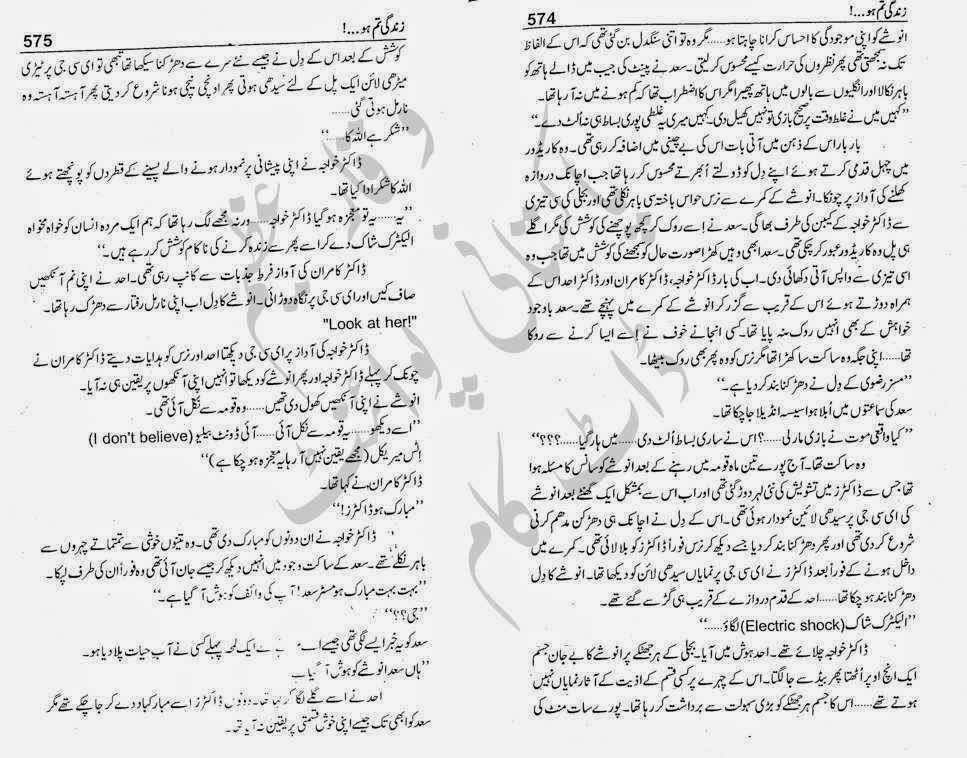 زندگی تم ہو...!
574
انوشے کو اپنی موجودگی کا احساس کرانا چاہتا ہو......مگر وہ تو اتنی سنگدل بن گئی تھی کہ اس کے الفاظ
تک نہ سمجھتی تھی پھر نظروں کی حرارت کیسے محسوس کر لیتی۔ سعد نے پینٹ کی جیب میں ڈالے ہاتھ کو
باہر نکالا اور انگلیوں سے بالوں میں ہاتھ پھیرا مگر اس کا اضطراب تھا کہ کم ہونے میں نہ آ رہا تھا۔
"کہیں میں نے غلط وقت پر صحیح بازی تو نہیں کھیل دی۔ کہیں میری یہ غلطی پوری بساط ہی نہ اُلٹ دے۔"
بار بار اس کے ذہن میں آتی بات اس کی بے چینی میں اضافہ کر رہی تھی۔ وہ کاریڈور
میں چہل قدمی کرتے ہوئے اپنے دِل کو ڈولتے اُبھرتے محسوس کر رہا تھا جب اچانک دروازہ
کھلنے کی آواز پر چونکا۔ انوشے کے کمرے سے نرس حواس باختہ سی باہر نکلی تھی اور بجلی کی سی تیزی
سے ڈاکٹر خواجہ کے کیبن کی طرف بھاگی۔ سعد نے اِسے روک کر کچھ پوچھنے کی کوشش کی مگر اگلے
ہی پل وہ کاریڈور عبور کر چکی تھی۔ سعد ابھی وہیں کھڑا صورت حال کو سمجھنے کی کوشش میں تھا جب وہ
اسی تیزی سے واپس آتی دکھائی دی۔ اب کی بار ڈاکٹر خواجہ، ڈاکٹر کامران اور ڈاکٹر احد اس کے
ہمراہ دوڑتے ہوئے اس کے قریب سے گزر کر انوشے کے کمرے میں پہنچے تھے۔ سعد باوجود
خواہش کے بھی انہیں روک نہ پایا تھا۔ کسی انجانے خوف نے اِسے ایسا کرنے سے روکا
تھا......اپنی جگہ وہ ساکت سا کھڑا تھا مگر نرس کو وہ پھر بھی روک بیٹھا۔
"مسز رضوی کے دِل نے دھڑکنا بند کر دیا ہے۔"
سعد کی سماعتوں میں اُبلا ہوا سیسہ انڈیلا جا چکا تھا۔
"کیا واقعی موت نے بازی مار لی......؟ اس نے ساری بساط اُلٹ دی......میں ہار گیا......؟؟؟"
وہ ساکت تھا۔ آج پورے تین ماہ قومہ میں رہنے کے بعد انوشے کو سانس کا مسئلہ ہوا
تھا جس سے ڈاکٹرز میں تشویش کی نئی لہر دوڑ گئی تھی اور اب اس سے بمشکل ایک گھنٹے بعد انوشے
کی ای سی جی پر سیدھی لائن نمودار ہوئی تھی۔ اس کے دِل نے اچانک ہی دھڑکن مدھم کرنی
شروع کر دی تھی اور پھر دھڑکنا بند کر دیا جسے دیکھ کر نرس فوراً ڈاکٹرز کو بلا لائی تھی۔ کمرے میں
داخل ہونے کے فوراً بعد ڈاکٹرز نے ای سی جی پر نمایاں سیدھی لائن کو دیکھا تھا۔ انوشے کا دِل
دھڑکنا بند ہو چکا تھا......احد کے قدم دروازے کے قریب ہی گڑ سے گئے تھے۔
"الیکٹرک شاک (Electric shock) لگاؤ......"
ڈاکٹر خواجہ چلائے تھے۔ احد ہوش میں آیا۔ بجلی کے ہر جھٹکے پر انوشے کا بے جان جسم
ایک انچ اوپر اُٹھتا پھر بیڈ سے جا لگتا۔ اس کے چہرے پر کسی قسم کے اذیت کے آثار نمایاں نہیں
ہوتے تھے......اس کا جسم ہر جھٹکے کو بڑی سہولت سے برداشت کر رہا تھا۔ پورے سات منٹ کی
زندگی تم ہو...!
575
کوشش کے بعد اس کے دِل نے جیسے نئے سرے سے دھڑکنا سیکھا تھا تبھی تو ای سی جی پر ٹیڑی
میڑھی لائن ایک پل کے لئے سیدھی ہوتی پھر اونچی نیچی ہونا شروع کر دیتی پھر آہستہ آہستہ وہ
نارمل ہوتی گئی......
"شکر ہے اللہ کا......"
ڈاکٹر خواجہ نے اپنی پیشانی پر نمودار ہونے والے پسینے کے قطروں کو پونچھتے ہوئے
اللہ کا شکر ادا کیا تھا۔
"یہ......یہ تو معجزہ ہو گیا ڈاکٹر خواجہ......ورنہ مجھے لگ رہا تھا کہ ہم ایک مردہ انسان کو خواہ مخواہ
الیکٹرک شاک دے کر اسے پھر سے زندہ کرنے کی ناکام کوشش کر رہے ہیں۔"
ڈاکٹر کامران کی آواز فرط جذبات سے کانپ رہی تھی۔ احد نے اپنی نم آنکھیں
صاف کیں اور ای سی جی پر نگاہ دوڑائی۔ انوشے کا دِل اب اپنی نارمل رفتار سے دھڑک رہا تھا۔
"Look at her!"
ڈاکٹر خواجہ کی آواز پر ای سی جی دیکھتا احد اور نرس کو ہدایات دیتے ڈاکٹر کامران نے
چونک کر پہلے ڈاکٹر خواجہ اور پھر انوشے کو دیکھا تو انہیں اپنی آنکھوں پر یقین ہی نہ آیا۔
انوشے نے اپنی آنکھیں کھول دی تھیں......وہ قومہ سے نکل آئی تھی۔
"اسے دیکھو......یہ قومہ سے نکل آئی......آئی ڈونٹ بیلیو (I don't believe)
اِٹس میریکل (مجھے یقین نہیں آ رہا یہ معجزہ ہو چکا ہے)"
ڈاکٹر کامران نے کہا تھا۔
"مبارک ہو ڈاکٹرز!"
ڈاکٹر خواجہ نے ان دونوں کو مبارک دی تھی۔ وہ تینوں خوشی سے تمتماتے چہروں سے
باہر نکلے تھے۔ سعد کے ساکت وجود میں انہیں دیکھ کر جیسے جان آئی تھی وہ فوراً ان کی طرف لپکا۔
"بہت بہت مبارک ہو مسٹر سعد! آپ کی وائف کو ہوش آ گیا ہے۔"
"جی؟؟"
سعد کو یہ خبر ایسے لگی تھی جیسے ایک لمحہ پہلے کسی نے آبِ حیات پلا دیا ہو۔
"ہاں سعد انوشے کو ہوش آ گیا
احد نے اسے گلے لگا کر کہا تھا۔ دونوں ڈاکٹرز اسے مبارکباد دے کر جا چکے تھے مگر
سعد کو ابھی تک جیسے اپنی خوش قسمتی پر یقین نہ آیا تھا۔